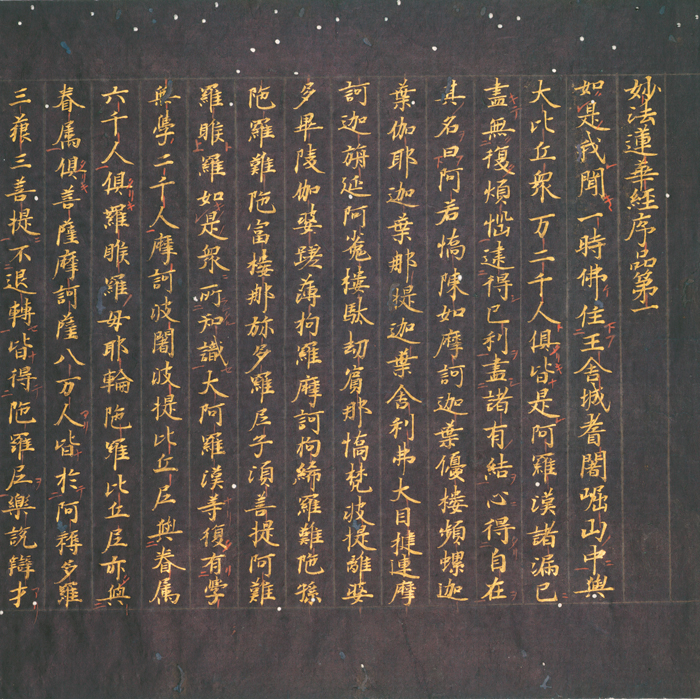 妙法蓮華経序品第一
如是我聞一時佛住王舎城耆闍崛山中與
大比丘衆万二千人俱皆是阿羅漢諸漏已
盡無復煩惱逮得已利盡諸有結心得自在
其名曰阿若憍陳如摩訶迦葉優樓頻螺迦
葉伽耶迦葉那提迦葉舎利弗大目揵連摩
訶迦旃延阿㝹樓馱劫賓那憍梵波提離婆
多畢陵伽婆蹉薄拘羅摩訶拘絺羅難陁孫
陁羅難陁富樓那弥多羅尼子湏菩提阿難
羅睺羅如是衆所知識大阿羅漢等復有學
無學二千人摩訶波闍波提比丘尼與眷属
六千人俱羅睺羅母耶輪陁羅比丘尼亦與
眷属俱菩薩摩訶薩八万人皆於阿耨多羅
三藐三菩提不退轉皆得陁羅尼樂説辯才